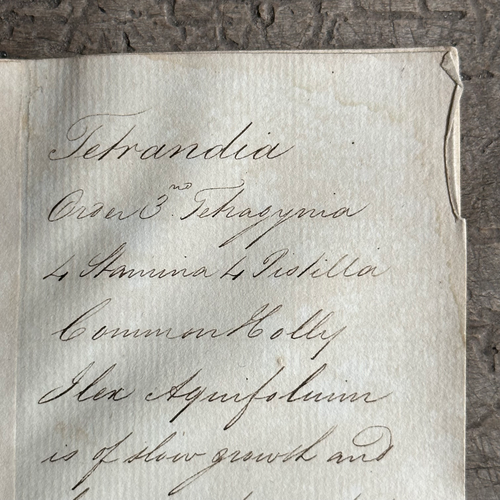 Tetrandia
Order 3no. Tetragynia
4 Stamina 4 Pistilla
Common Holly
Ilex Aquifolium
is of slow growth and